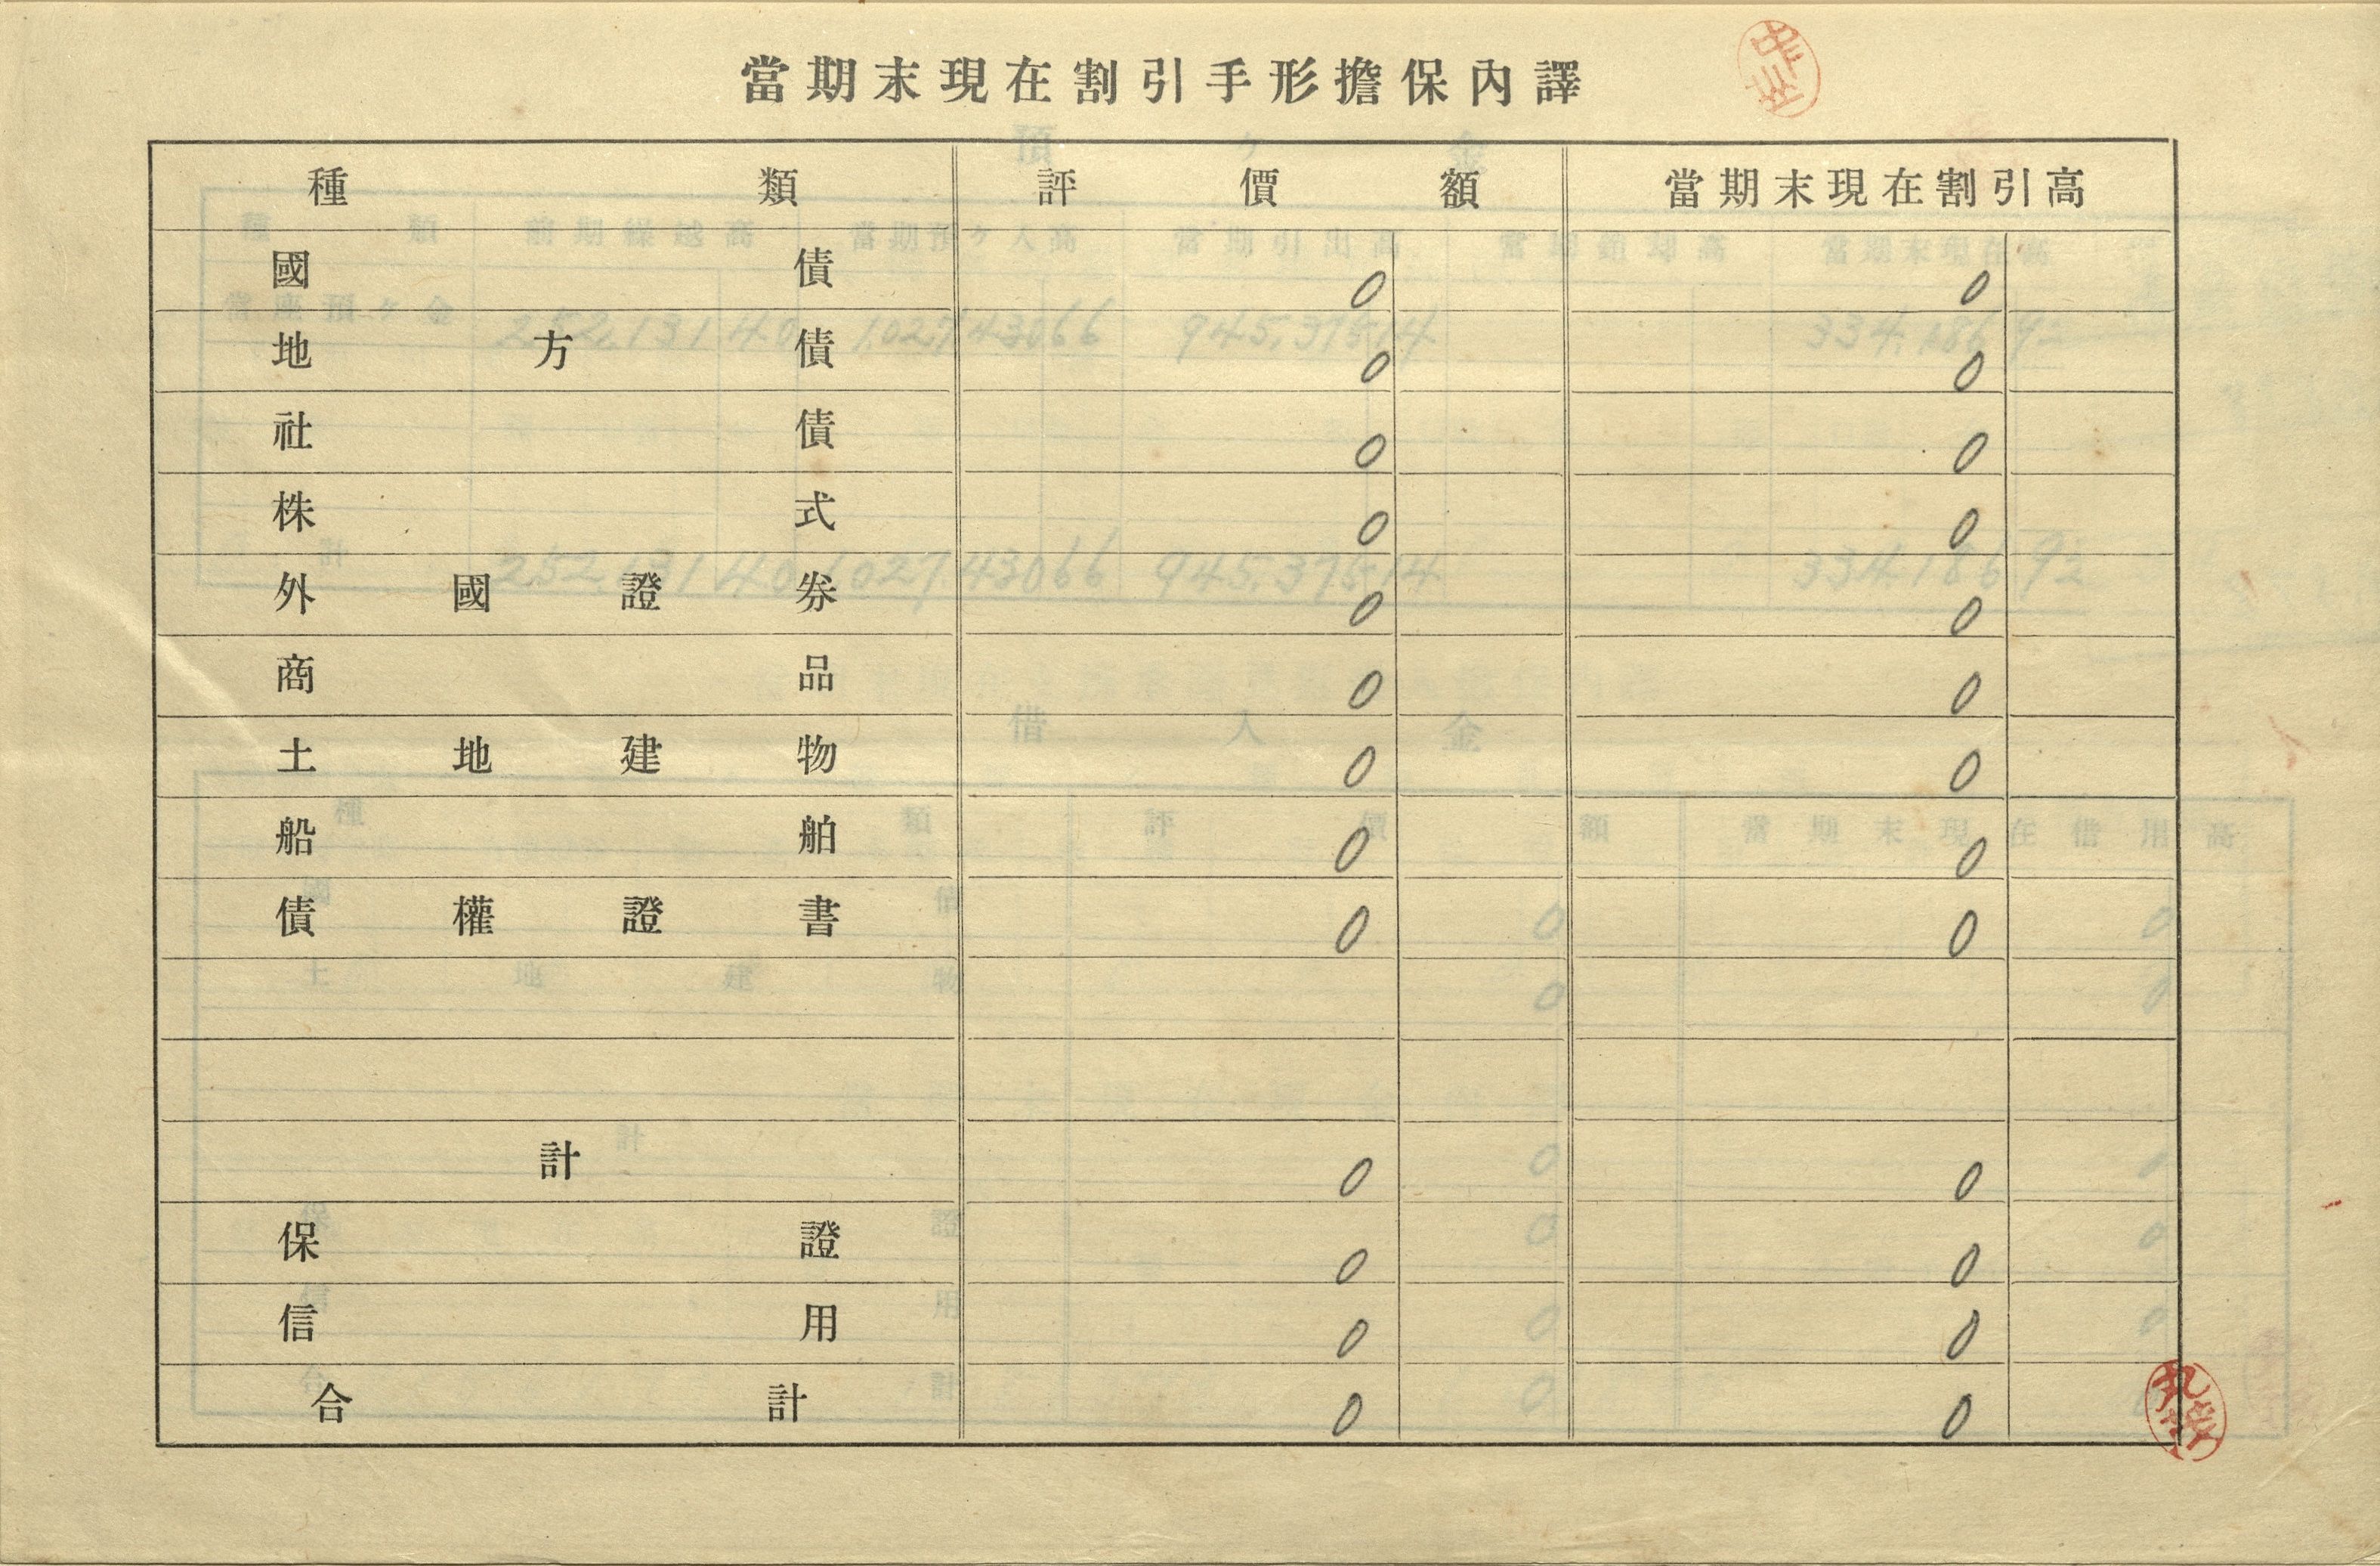 當期末現在割引手形擔保內譯
種類 評價額 當期末現在割引高
國債 0 0
地方債 0 0
社債 0 0
株式 0 0
外國證券 0 0
商品 0 0
土地建物 0 0
船舶 0 0
債權證書 0 0
計 0 0
保證 0 0
信用 0 0
合計 0 0